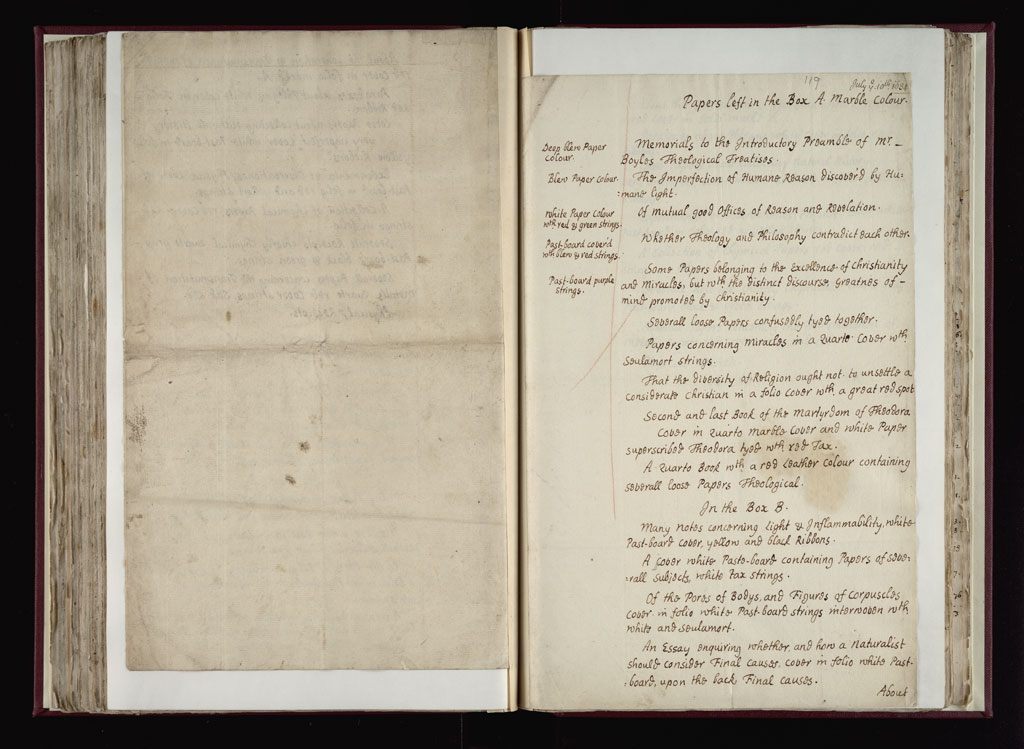 119
July y 10th 1684
Papers left in the Box A Marble Colour.
Deep blew Paper
colour.
Memorials to the Introductory Preamble of Mr. _
Boyles Theological Treatises.
Blew Paper colour.
The Imperfection of Humane Reason discover'd by Hu:
:mane light.
white Paper Colour
wth red & green strings.
Of mutual good Offices of Reason and Revelation.
Past-board cover'd
wth blew & red strings.
Whether Theology and Philosophy contradict each other.
Past-board purple
strings.
Some Papers belonging to the Excellence of Christianity
and Miracles, but wth the distinct discourse, Greatnes of –
mind promoted by Christianity.
Severall loose Papers confusedly tyed together.
Papers concerning Miracles in a Quarto Cover wth
Seulamort strings.
That the diversity of Religion ought not to unsettle a
Considerate Christian in a folio Cover wth a great red spot
Second and last Book of the Martyrdom of Theodora
Cover in Quarto Marble Cover and white Paper
superscribed Theodora tyed wth red Tax.
A Quarto Book wth a red Leather Colour containing
severall loose Papers Theological.
In the Box B.
Many notes concerning Light & Inflammability, white
Past-board Cover, yellow and black Ribbons.
A Cover white Paste-board containing Papers of seve:
:rall subjects, white Tax strings.
Of the Pores of Bodys, and Figures of Corpuscles
Cover in folio white Past-board strings interwoven wth
white and seulamort.
An Essay enquiring whether, and how a Naturalist
should consider Final Causes, Cover in folio white Past-
:board, upon the back Final Causes.
About